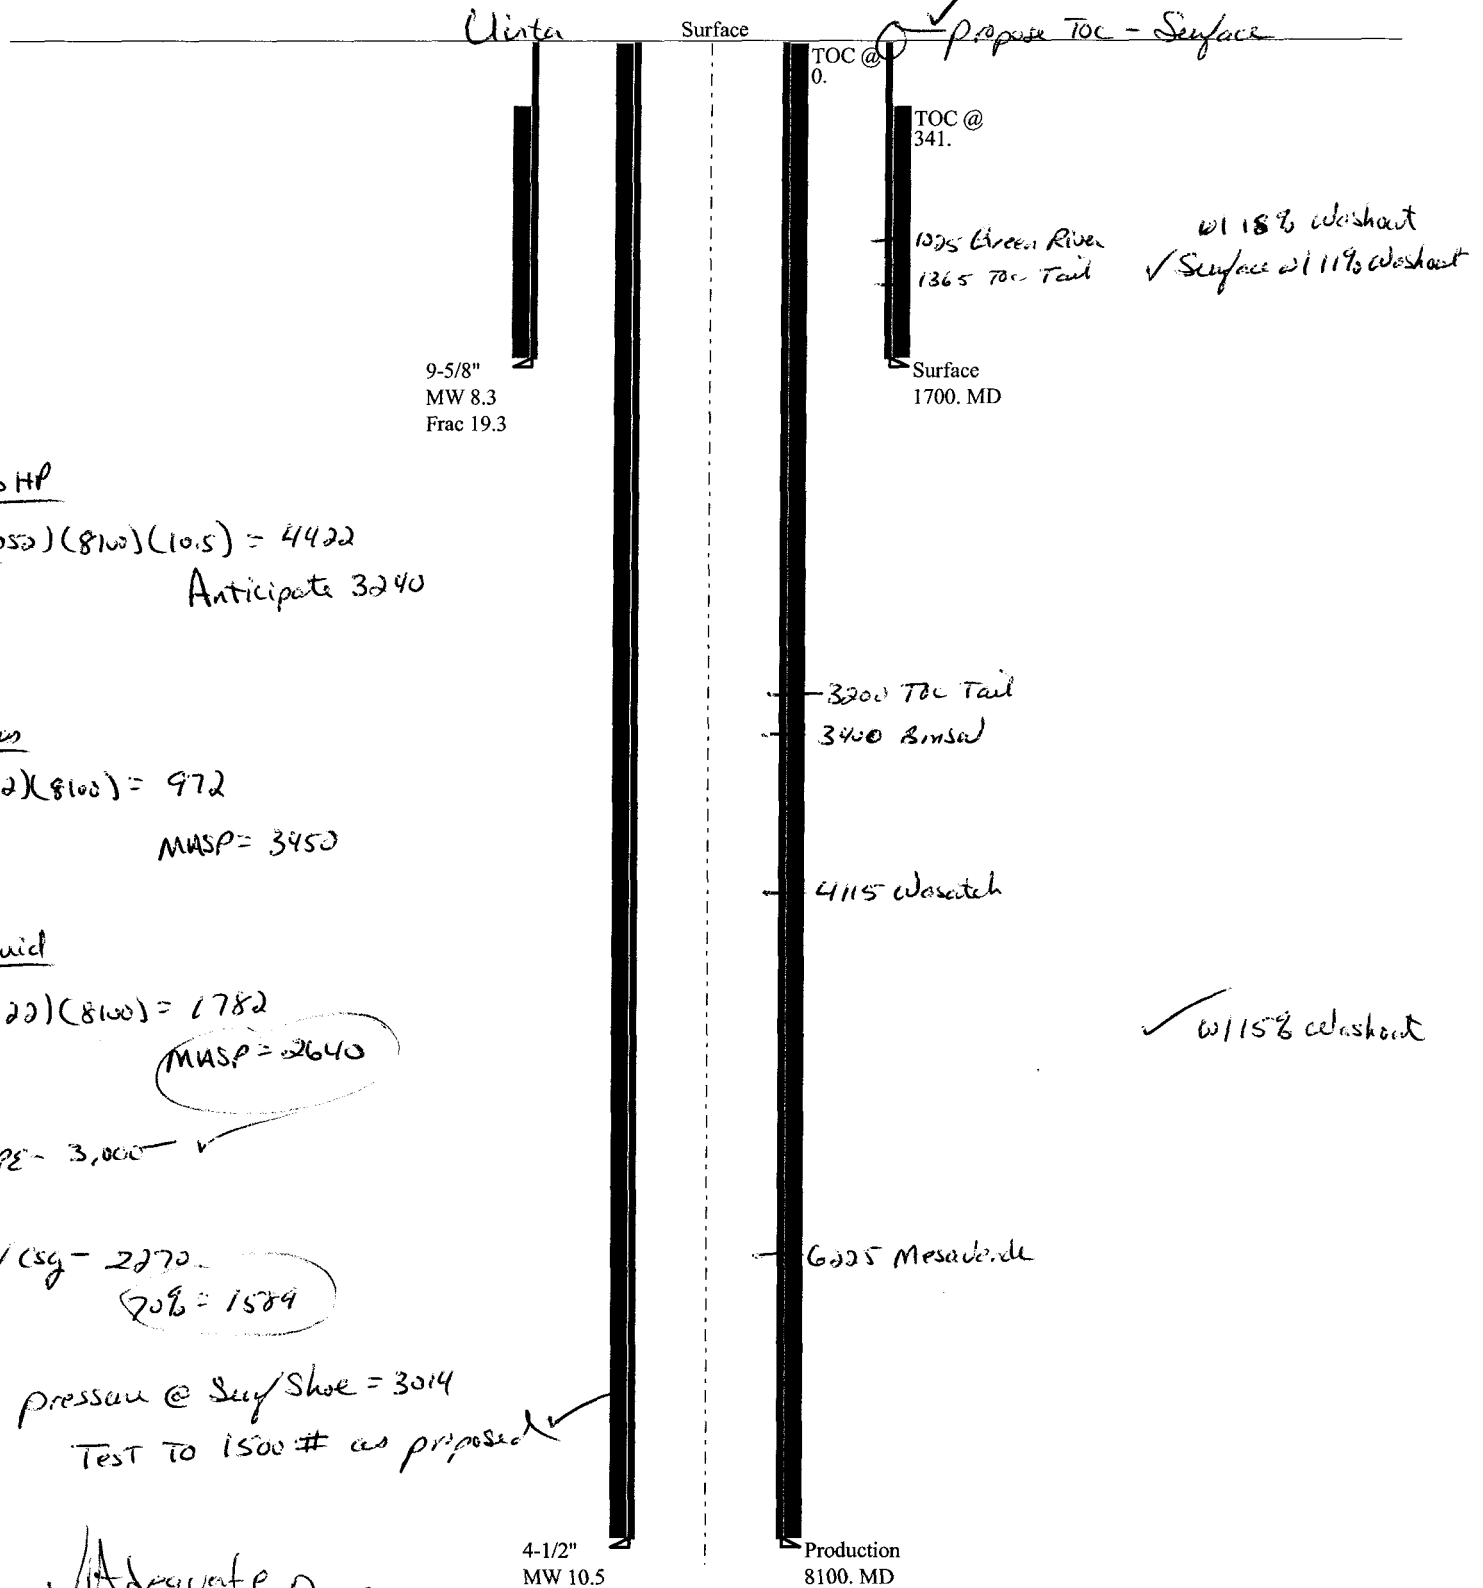 Uinta
Surface
✓ propose TOC - Surface
TOC @
0.
TOC @
341.
w/ 18% Washout
1025 Green River
✓ Surface w/ 11% Washout
1365 TOC Tail
9-5/8"
MW 8.3
Frac 19.3
Surface
1700. MD
HP
052)(8100)(10.5) = 4422
Anticipate 3240
3200 TOC Tail
3400
2)(8100) = 972
MASP = 3450
4115 Wasatch
uid
22)(8100) = 1782
MASP = 2640
✓ w/ 15% Washout
PE - 3,000 ✓
6225 Mesaverde
Csg - 2270
70% = 1589
pressure @ Surf Shoe = 3014
Test To 1500 # as proposed ✓
✓ Adequate
4-1/2"
MW 10.5
Production
8100. MD